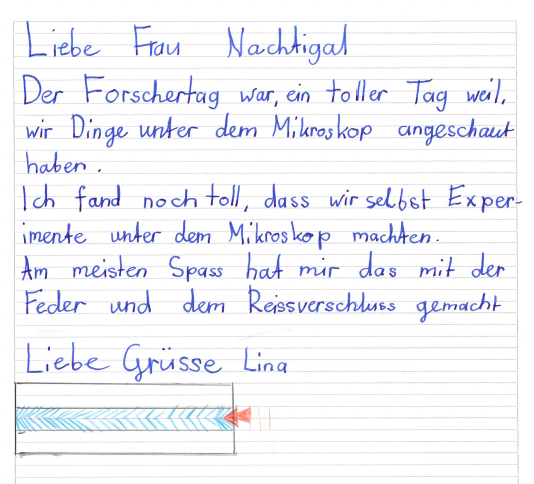 Liebe Frau Nachtigal
Der Forschertag war, ein toller Tag weil,
wir Dinge unter dem Mikroskop angeschaut
haben.
Ich fand noch toll, dass wir selbst Exper-
imente unter dem Mikroskop machten.
Am meisten Spass hat mir das mit der
Feder und dem Reissverschluss gemacht
Liebe Grüsse Lina